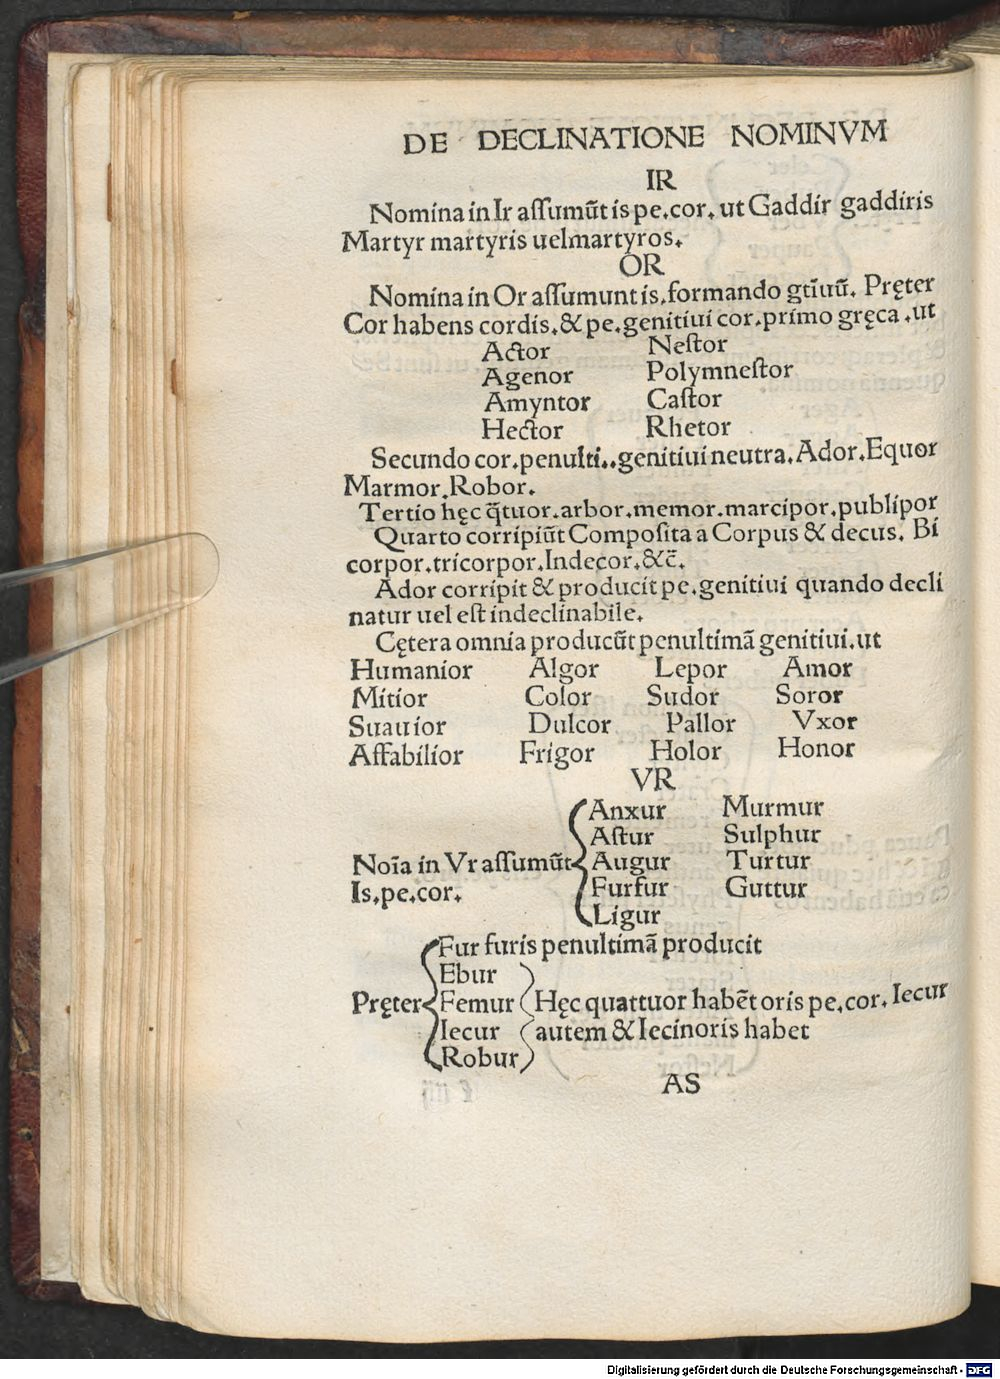 DE DECLINATIONE NOMINVM
IR
Nomina in Ir assumūt is pe.cor. ut Gaddir gaddiris
Martyr martyris uel martyros.
OR
Nomina in Or assumunt is.formando gtĩuũ. Pręter
Cor habens cordis.& pe.genitiui cor.primo gręca .ut
Actor Nestor
Agenor Polymnestor
Amyntor Castor
Hector Rhetor
Secundo cor.penulti..genitiui neutra.Ador.Equor
Marmor.Robor.
Tertio hęc q̃tuor.arbor.memor.marcipor.publipor
Quarto corripiūt Composita a Corpus & decus. Bi
corpor.tricorpor.Indecor.&c̃.
Ador corripit & producit pe.genitiui quando decli
natur uel est indeclinabile.
Cętera omnia producūt penultimā genitiui.ut
Humanior Algor Lepor Amor
Mitior Color Sudor Soror
Suauior Dulcor Pallor Vxor
Affabilior Frigor Holor Honor
VR
Anxur Murmur
Astur Sulphur
Noĩa in Vr assumūt Augur Turtur
Is.pe.cor. Furfur Guttur
Ligur
Fur furis penultimā producit
Ebur
Pręter Femur Hęc quattuor habēt oris pe.cor. Iecur
Iecur autem & Iecinoris habet
Robur
AS
Digitalisierung gefördert durch die Deutsche Forschungsgemeinschaft - DFG